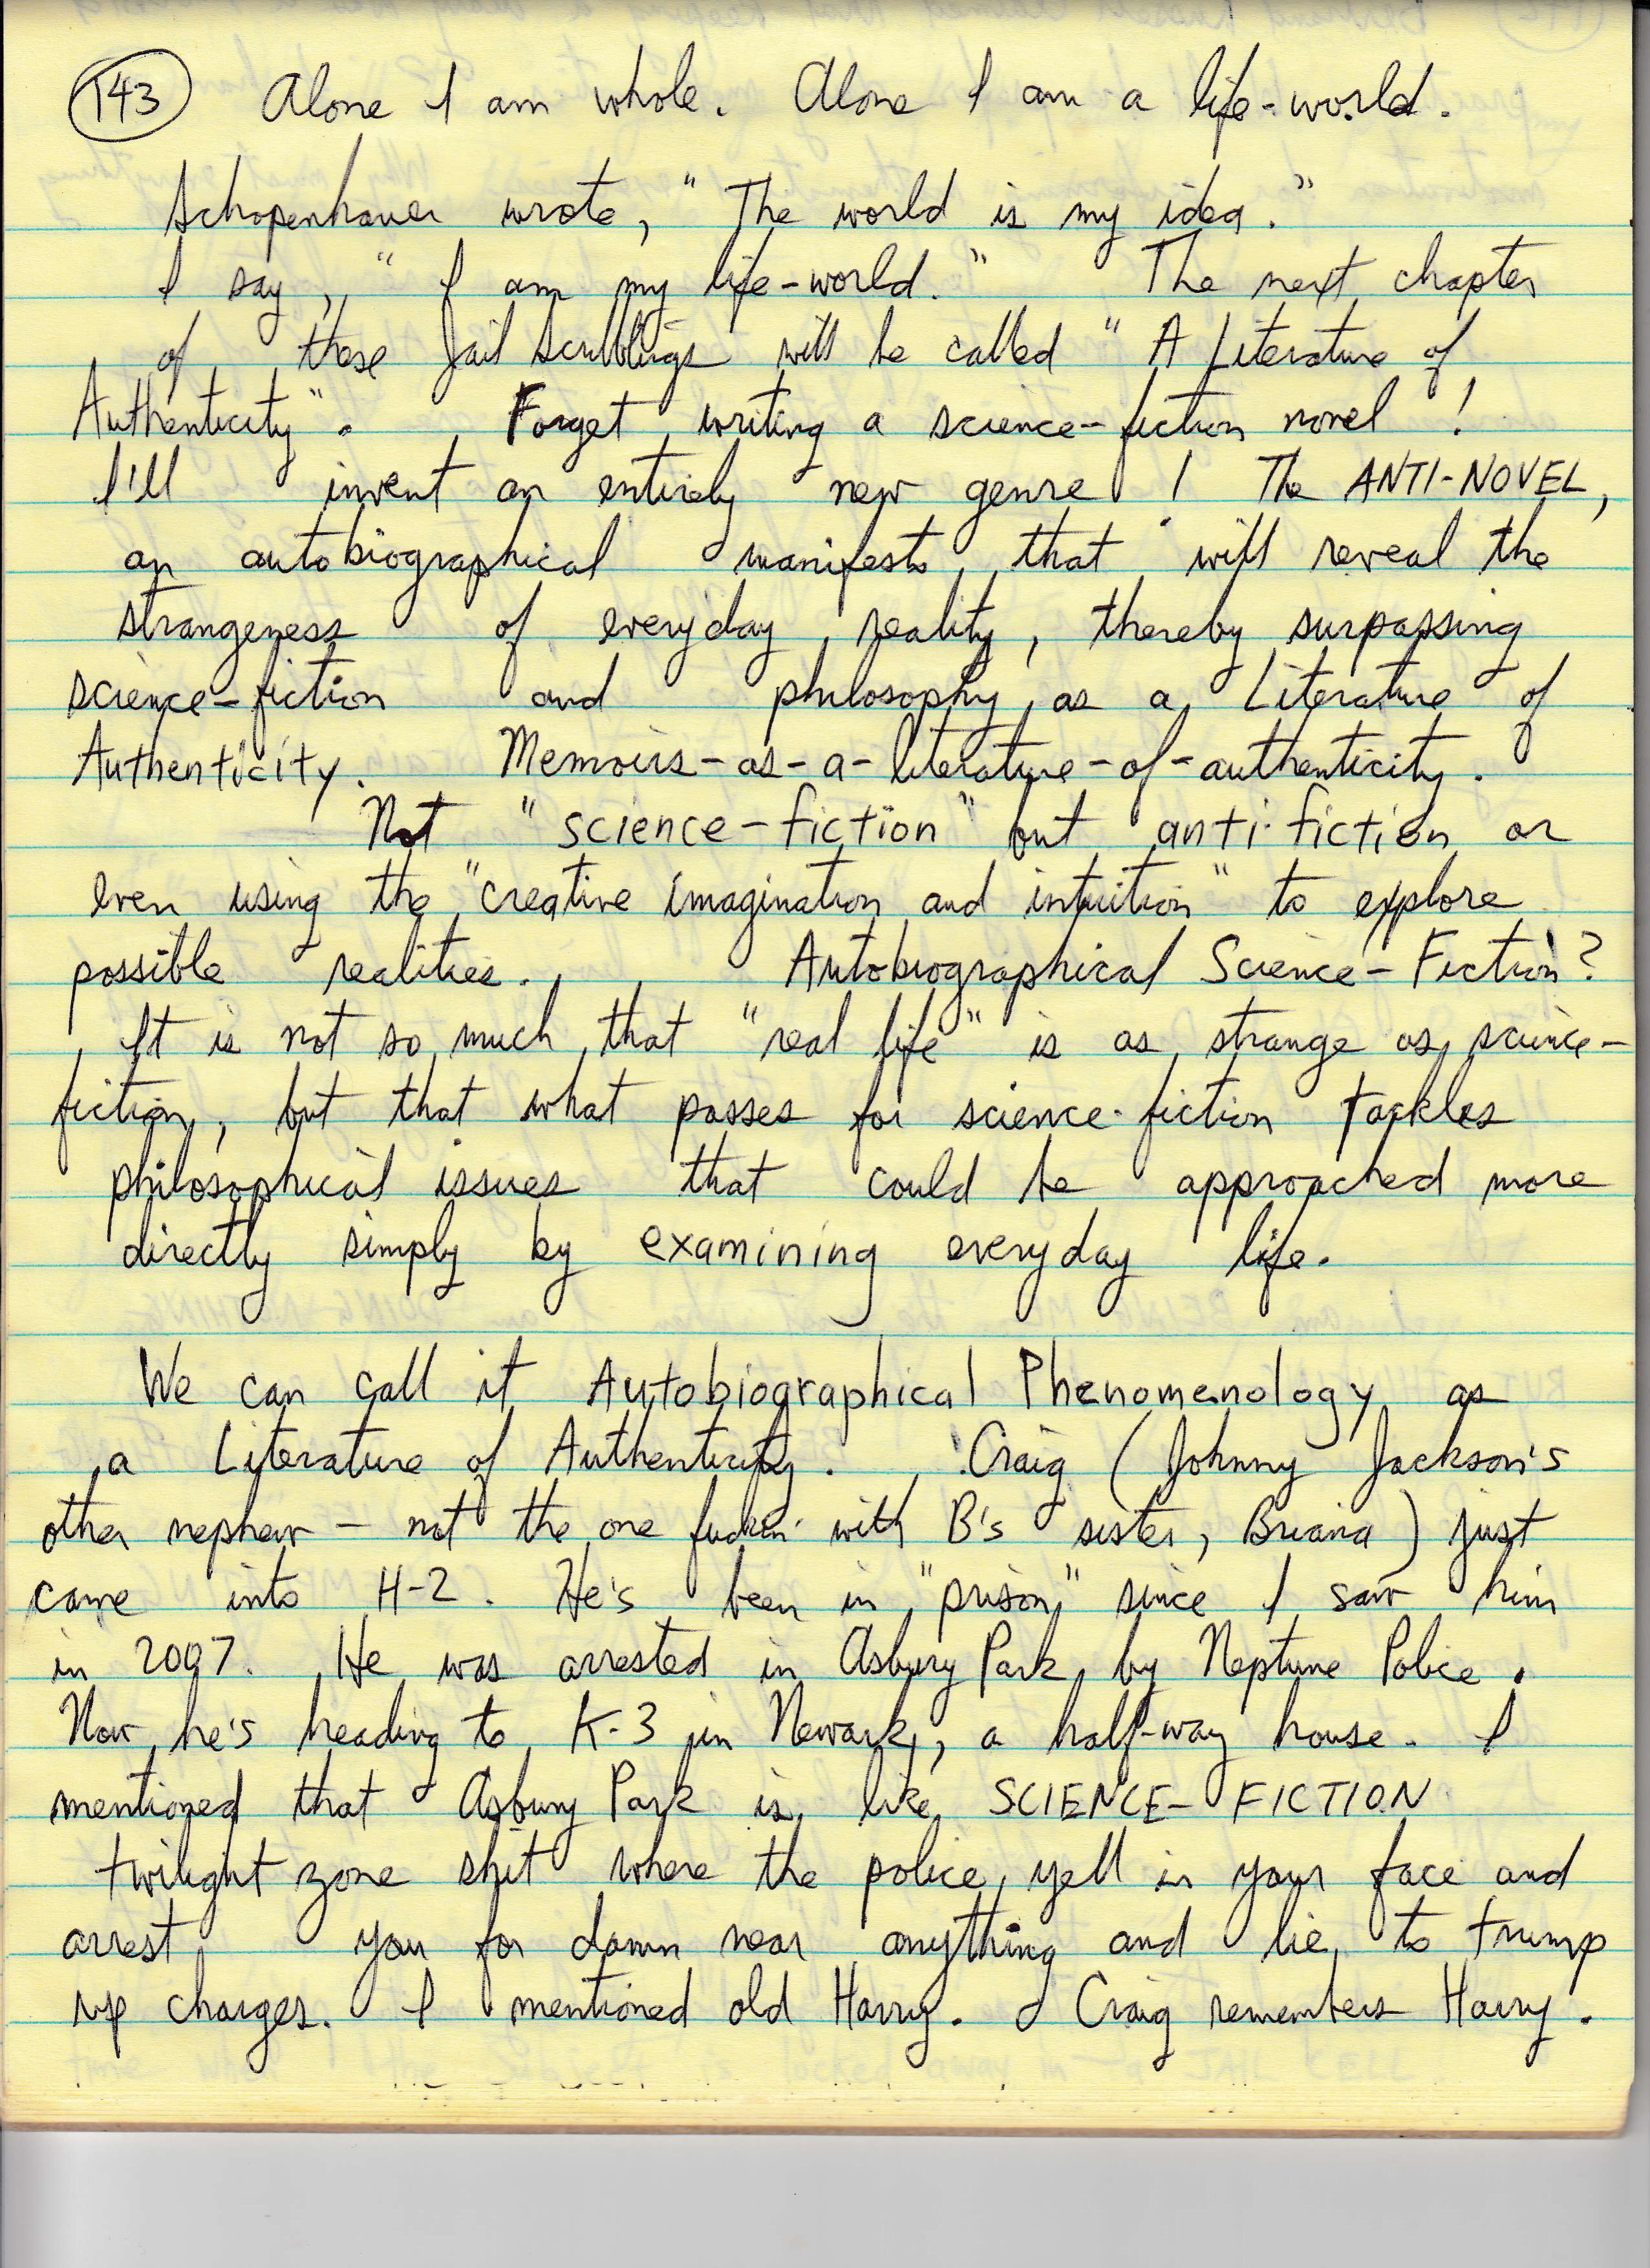 143 Alone I am whole. Alone I am a life-world.
Schopenhauer wrote, "The world is my idea."
I say, "I am my life-world." The next chapter
of these Jail Scribblings will be called "A Literature of
Authenticity". Forget writing a science-fiction novel!
I'll invent an entirely new genre! The ANTI-NOVEL,
an autobiographical manifesto that will reveal the
strangeness of everyday reality, thereby surpassing
science-fiction and philosophy as a Literature of
Authenticity. Memoirs-as-a-literature-of-authenticity.
Not "science-fiction" but anti-fiction or
even using the "creative imagination and intuition" to explore
possible realities. Autobiographical Science-Fiction?
It is not so much that "real life" is as strange as science-
fiction, but that what passes for science-fiction tackles
philosophical issues that could be approached more
directly simply by examining everyday life.
We can call it Autobiographical Phenomenology as
a Literature of Authenticity. Craig (Johnny Jackson's
other nephew - not the one fuckin' with B's sister, Briana) just
came into H-2. He's been in "prison" since I saw him
in 2007. He was arrested in Asbury Park by Neptune Police.
Now he's heading to K-3 in Newark, a half-way house. I
mentioned that Asbury Park is like SCIENCE-FICTION
twilight zone shit where the police yell in your face and
arrest you for damn near anything and lie to trump
up charges. I mentioned old Harry. Craig remembers Harry.